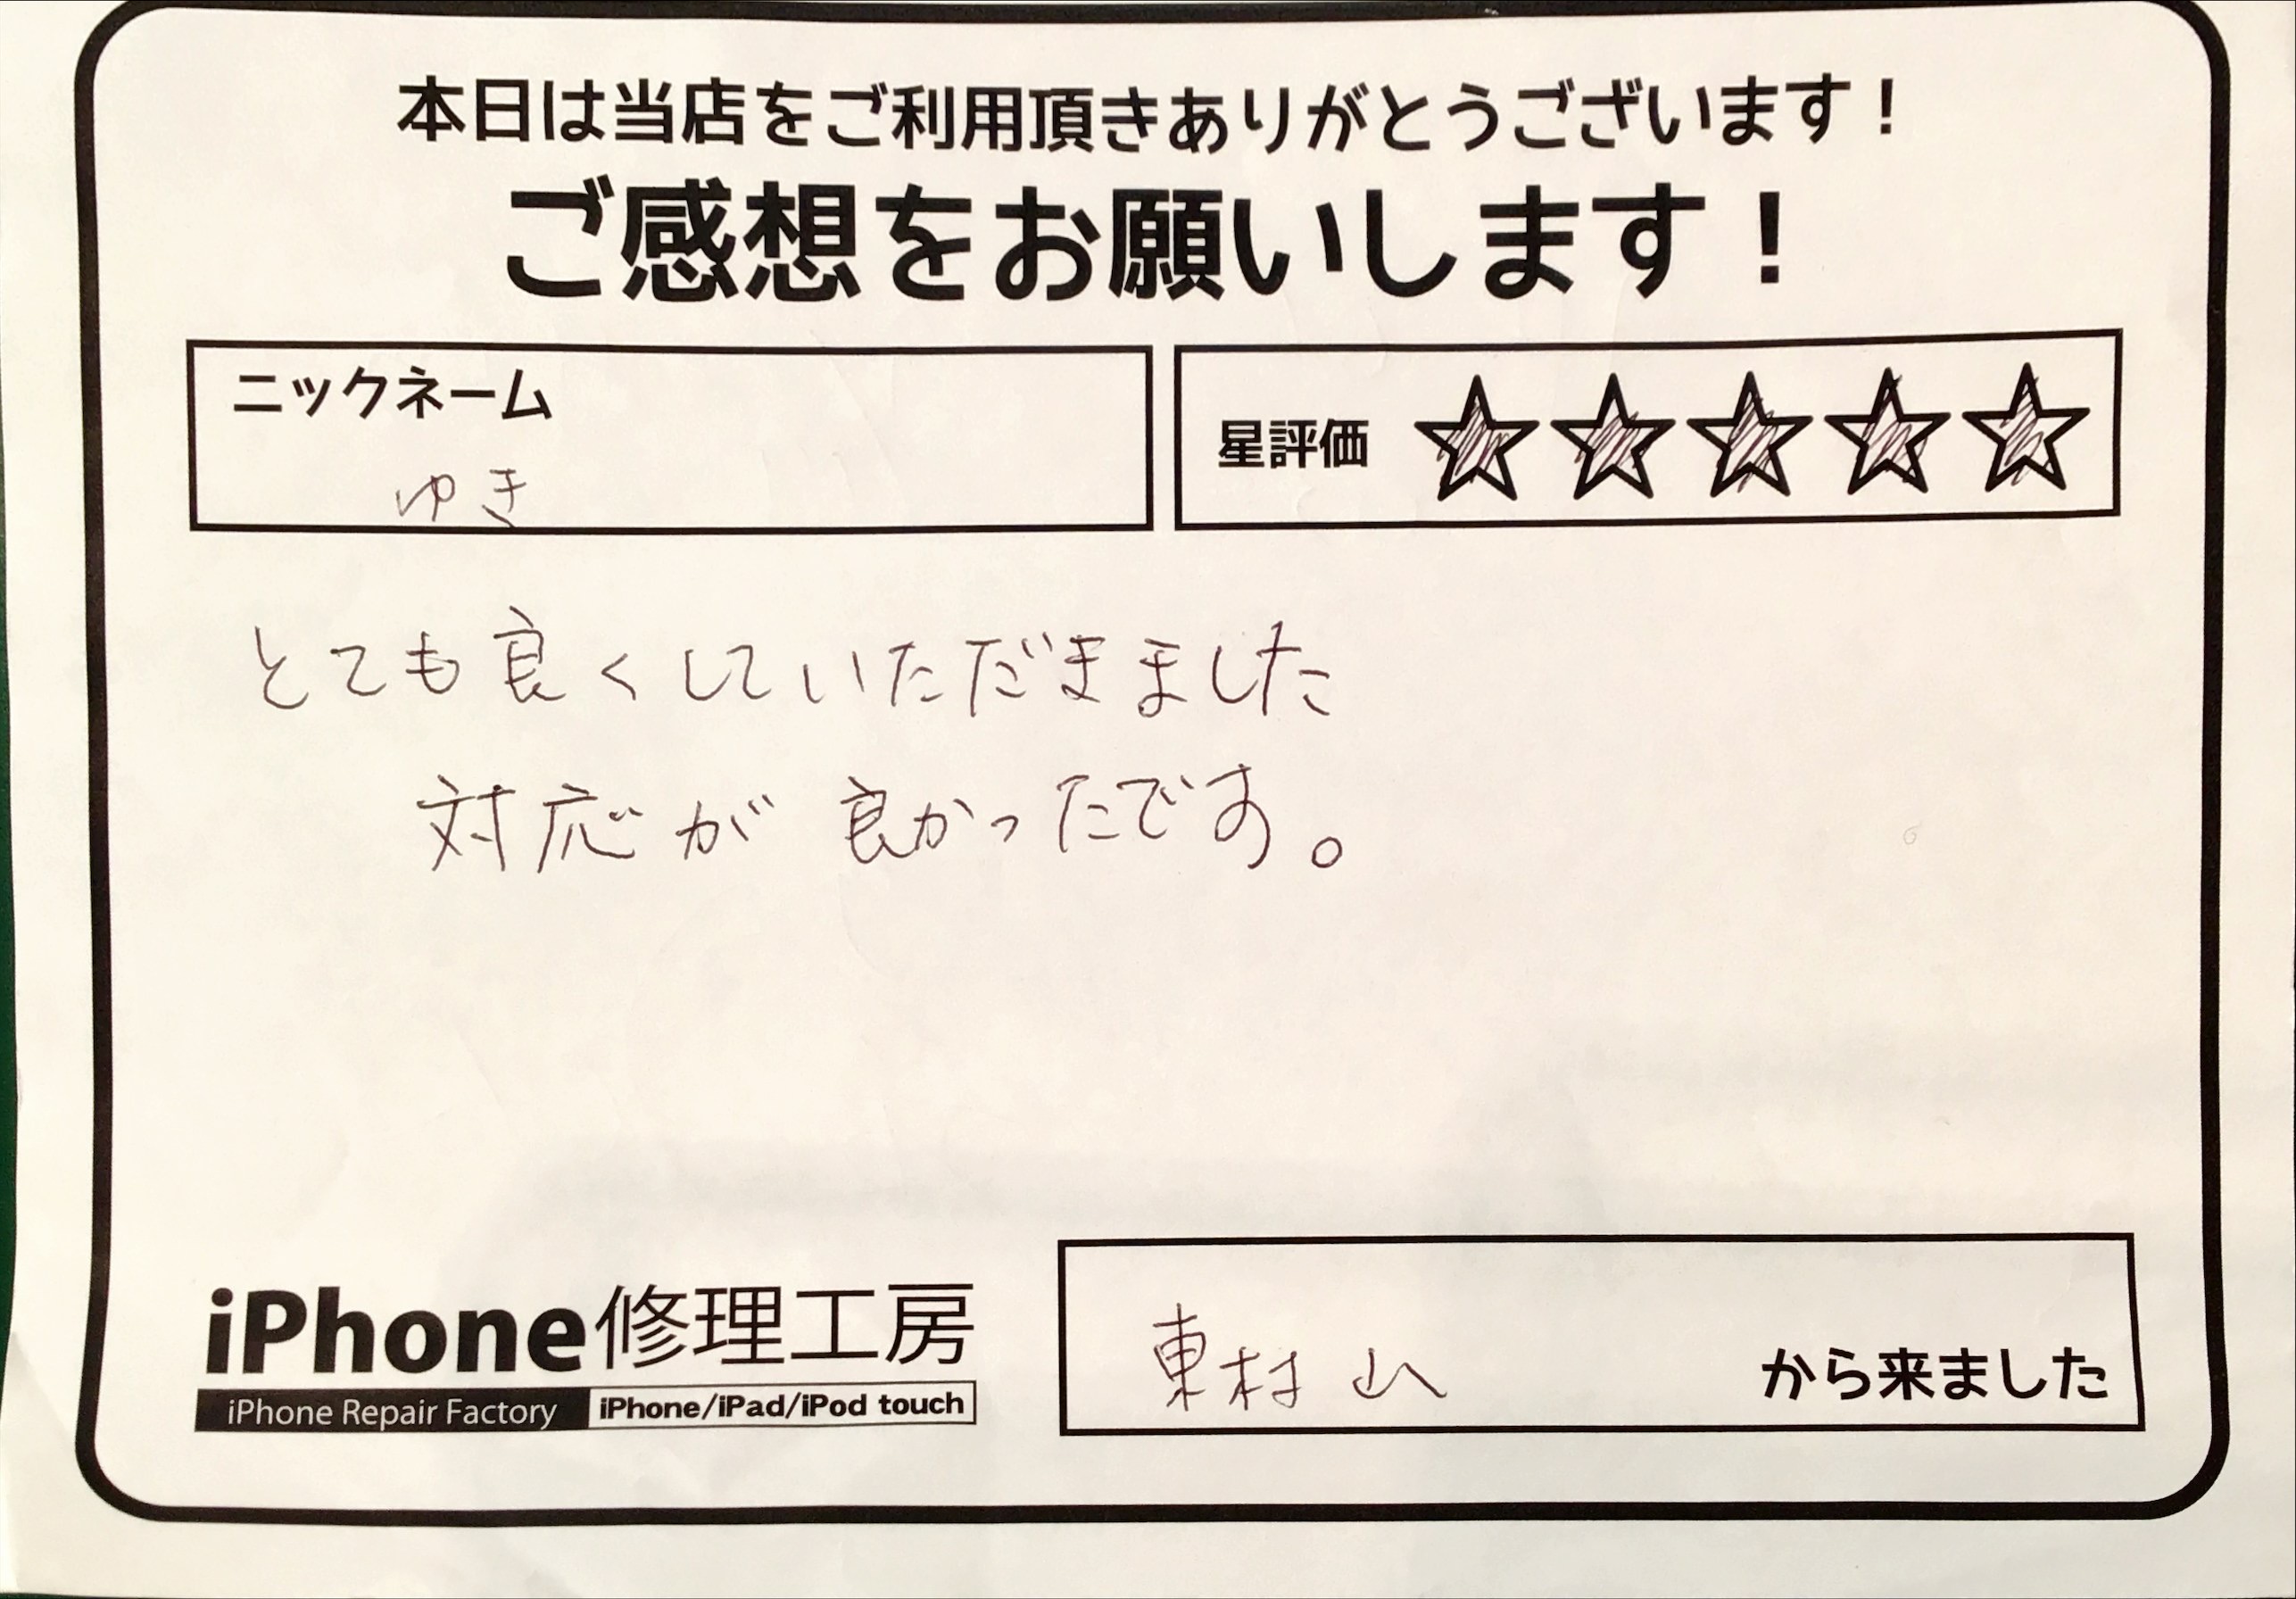 本日は当店をご利用頂きありがとうございます！
ご感想をお願いします！
ニックネーム
ゆき
星評価 ☆☆☆☆☆
とても良くしていただきました
対応が良かったです。
iPhone修理工房
iPhone Repair Factory iPhone/iPad/iPod touch
東村山 から来ました